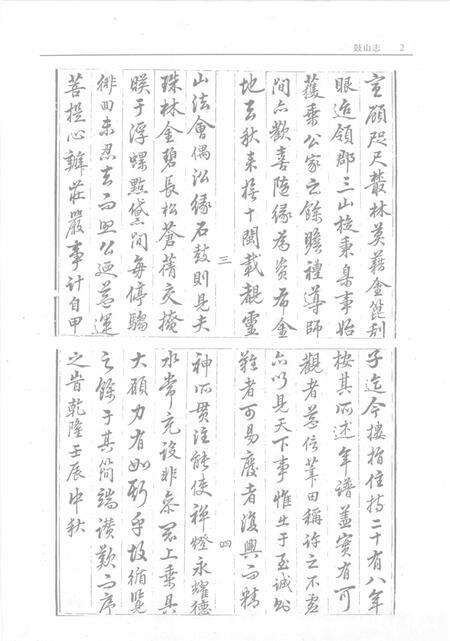 鼓山志 2
宦願咫尺叢林莫藉金篦刮
眼迨領郡三山旋秉臬事始
獲乘公家之餘瞻禮導師
間亦歡喜隨緣為資布金
地去秋來撫十閩載覩靈
三
山法會偶泓緣石鼓則見夫
珠林金碧長松蒼蒨交掩
映于浮螺點黛間每停驂
徘徊未忍去而思公廻慈運
菩提心辦莊嚴事計自甲
子迄今摟指住持二十有八年
按其所述年譜蓋實有可
觀者益信田稱許之不虛
亦以見天下事惟出于至誠則
難者可易廢者復興而精
四
神所貫注能使祥燈永耀德
水常充設非參最上乘具
大願力有如斯乎故循覽
之餘于其簡端讚歎而序
之旹乾隆壬辰中秋